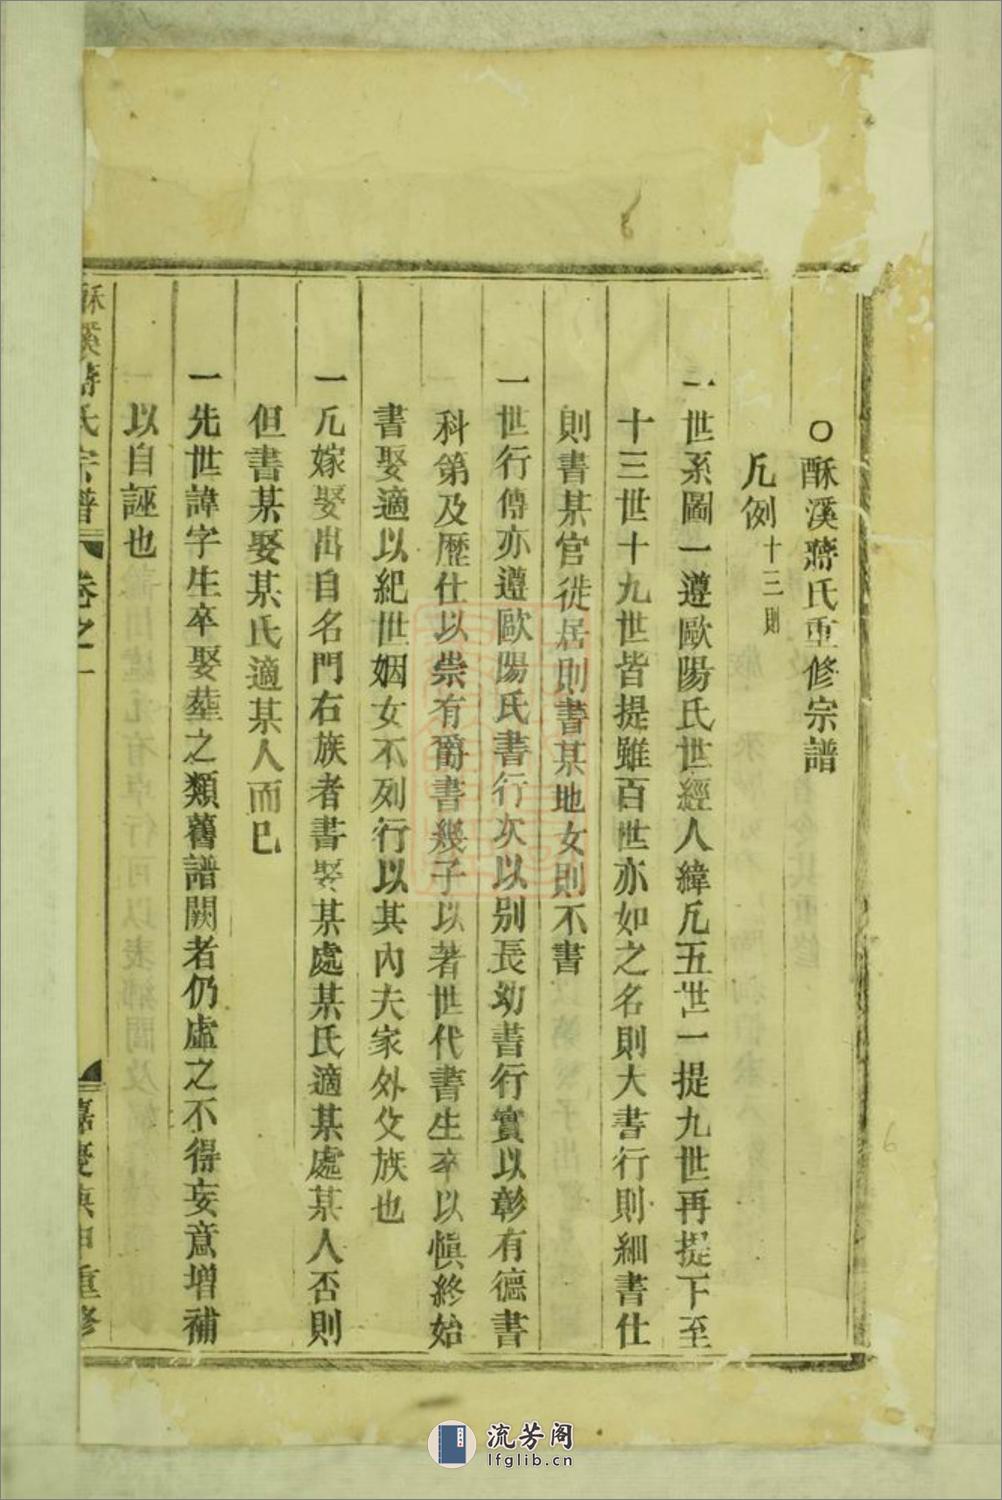 ○酥溪蔣氏重修宗譜
凡例十三則
一世系圖一遵歐陽氏世經人緯凡五世一提九世再提下至
十三世十九世皆提雖百世亦如之名則大書行則細書仕
則書某官徙居則書某地女則不書
一世行傳亦遵歐陽氏書行次以别長幼書行實以彰有德書
科第及歷仕以崇有爵書幾子以著世代書生卒以愼終始
書娶適以紀世姻女不列行以其內夫家外父族也
一凡嫁娶出自名門右族者書娶某處某氏適某處某人否則
但書某娶某氏適某人而已
一先世諱字生卒娶塟之類舊譜闕者仍虛之不得妄意增補
以自誣也
酥溪蔣氏宗譜 卷之一 嘉慶 重修
6
流芳阁
lfglib.cn